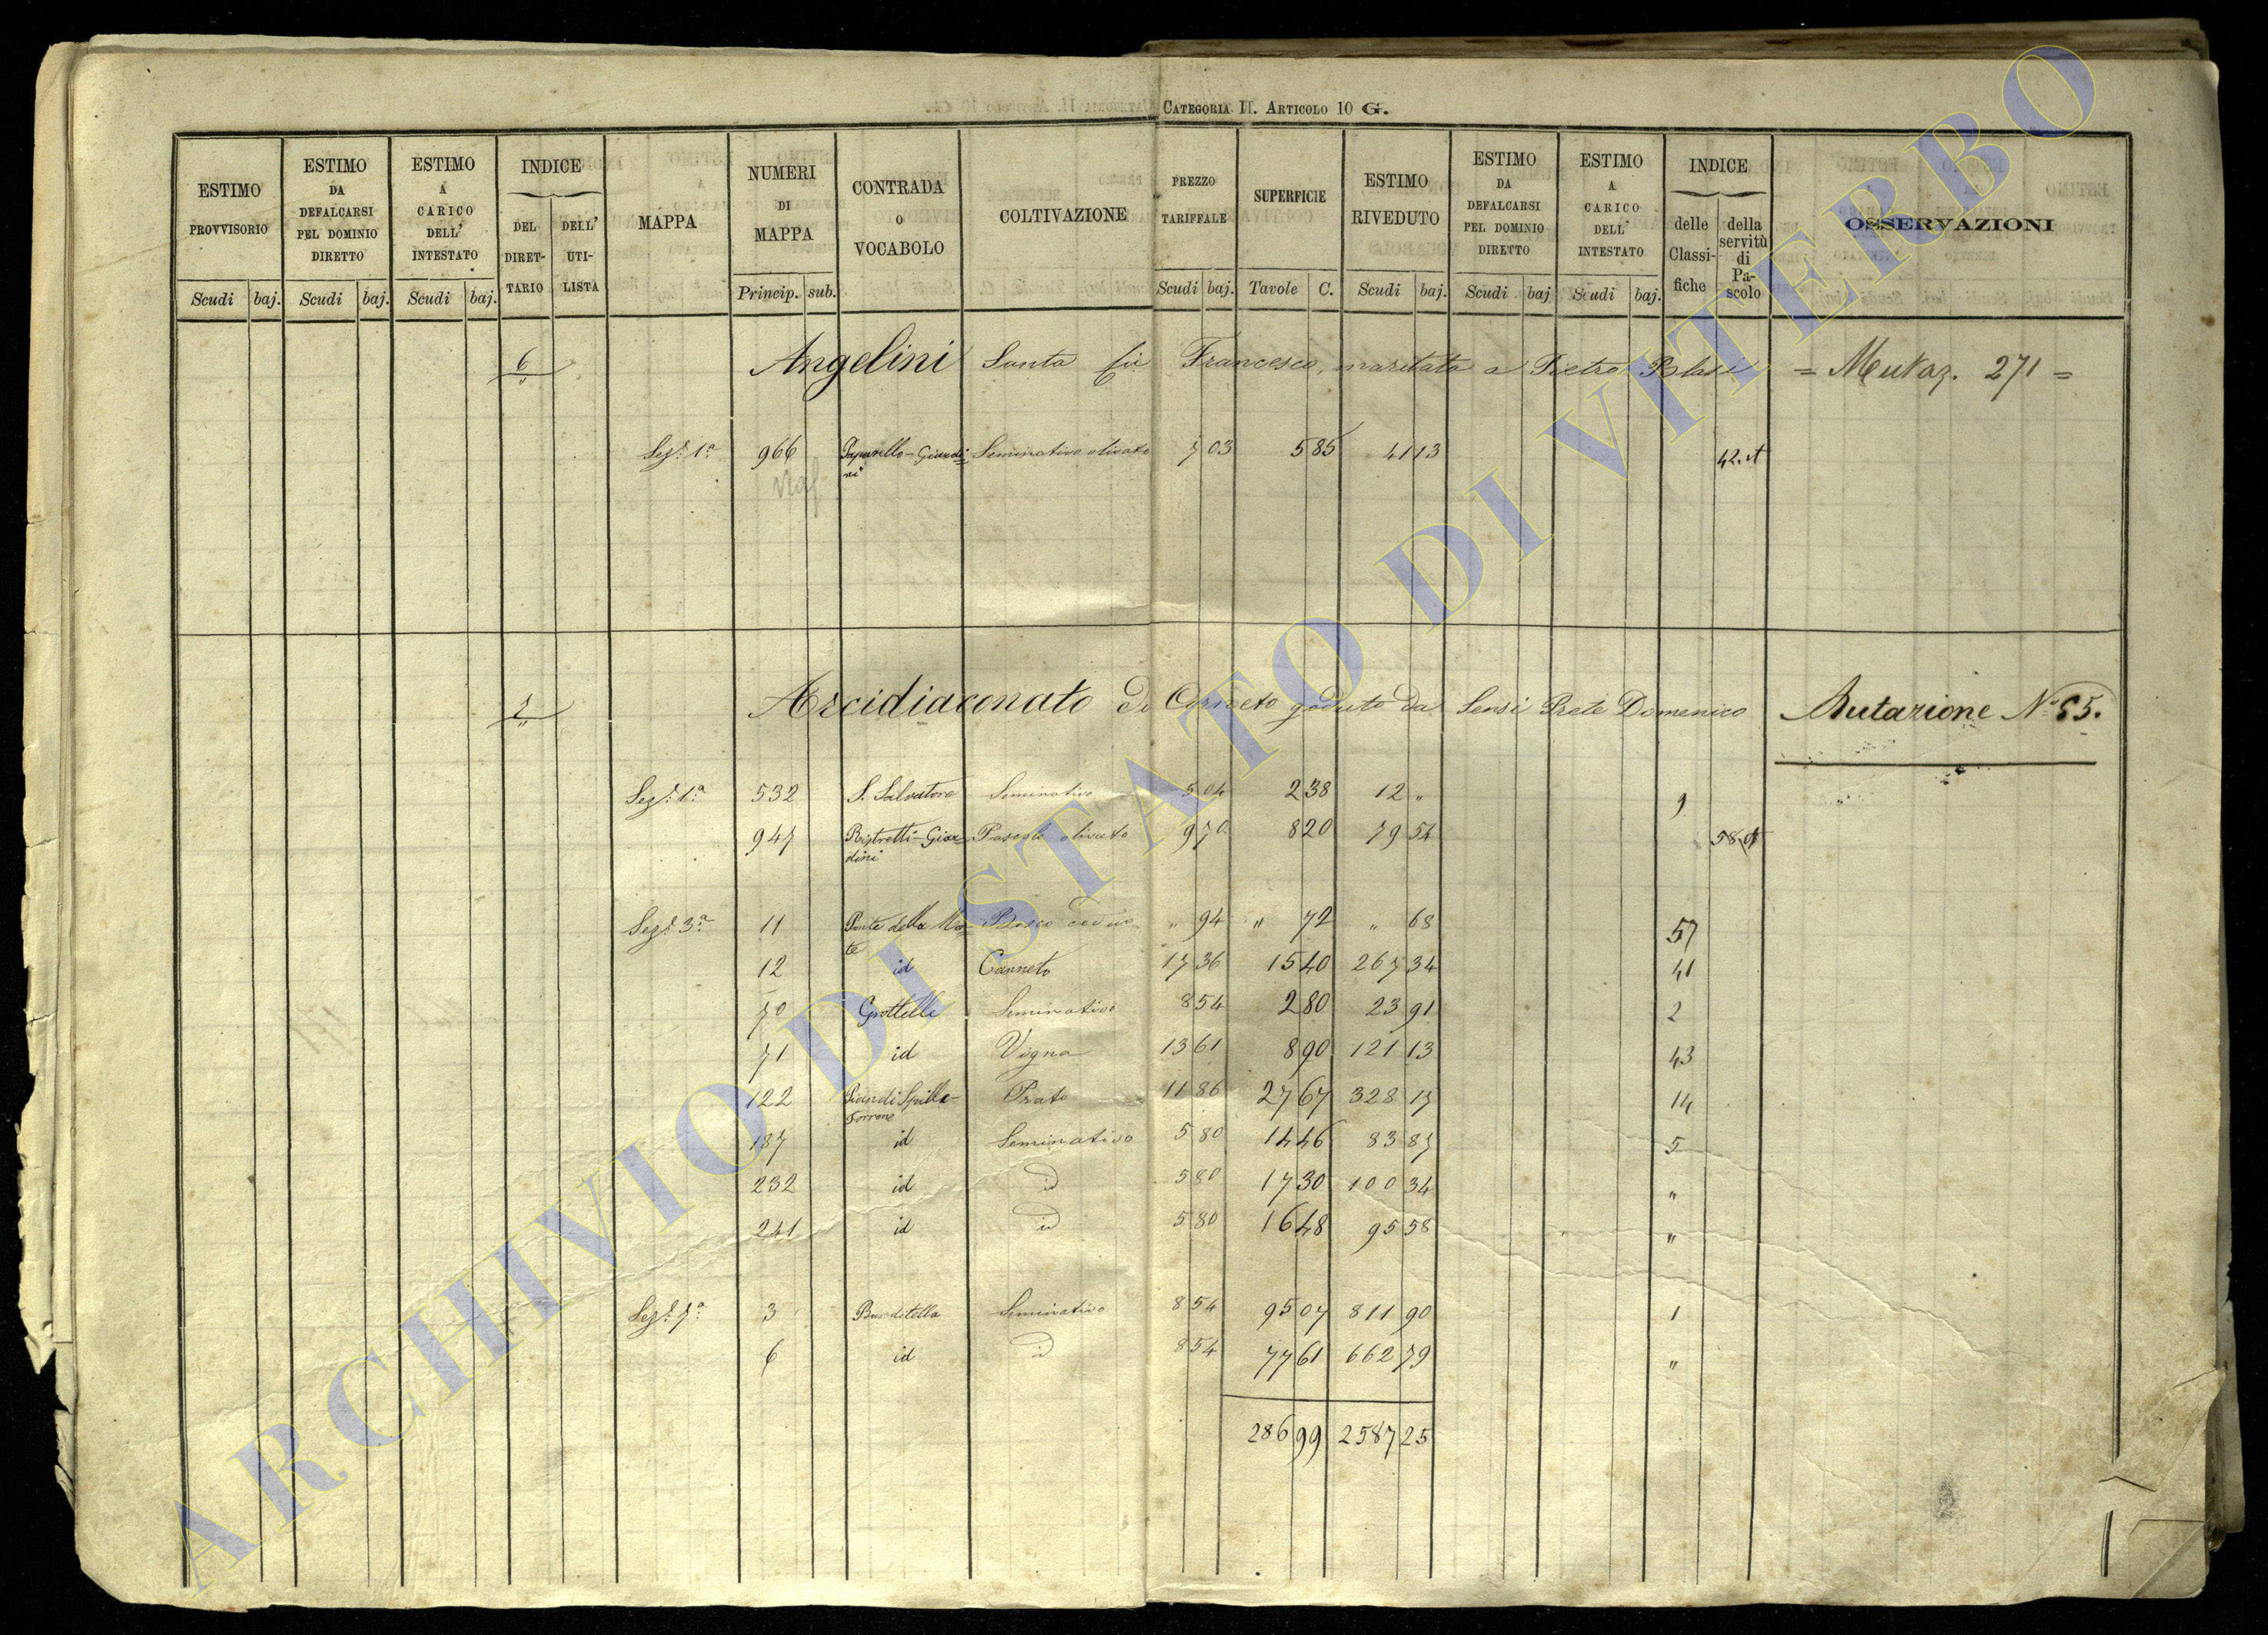 CATEGORIA II. ARTICOLO 10 G.
ESTIMO PROVVISORIO
ESTIMO DA DEFALCARSI PEL DOMINIO DIRETTO
ESTIMO A CARICO DELL' INTESTATO
INDICE
DEL DIRET-TARIO
DELL' UTI-LISTA
MAPPA
NUMERI DI MAPPA
CONTRADA O VOCABOLO
COLTIVAZIONE
PREZZO TARIFFALE
SUPERFICIE
ESTIMO RIVEDUTO
ESTIMO DA DEFALCARSI PEL DOMINIO DIRETTO
ESTIMO A CARICO DELL' INTESTATO
INDICE
delle Classi-fiche
della servitù di Pa-scolo
OSSERVAZIONI
Scudi baj. Scudi baj. Scudi baj. Princip. sub. Scudi baj. Tavole C. Scudi baj. Scudi baj Scudi baj.
6 Angelini Santa fu Francesco, maritata a Pietro Blasi = Mutaz. 271 =
Sez.e 1a 966 Paparello-Giardi= Seminativo olivato 7 03 5 85 41 13 42.
ni
Arcidiaconato di Corneto goduto da Sensi Prete Domenico Mutazione No 65.
Sez.e 1a 532 S. Salvatore Seminativo 5 04 2 38 12 " 9
947 Ristretti-Giar= Pascolo olivato 9 70 8 20 79 54 58.
dini
Sez.e 3a 11 Ponte della Mor= Bosco ceduo " 94 " 72 " 68 57
te
12 id Canneto 17 36 15 40 267 34 41
70 Grottelle Seminativo 8 54 2 80 23 91 2
71 id Vigna 13 61 8 90 121 13 43
122 Pian di Spilla- Prato 11 86 27 67 328 17 14
Torrone
187 id Seminativo 5 80 14 46 83 87 5
232 id id 5 80 17 30 100 34 "
241 id id 5 80 16 48 95 58 "
Sez.e 7a 3 Banditella Seminativo 8 54 95 07 811 90 1
6 id id 8 54 77 61 662 79 "
286 99 2587 25
ARCHIVIO DI STATO DI VITERBO